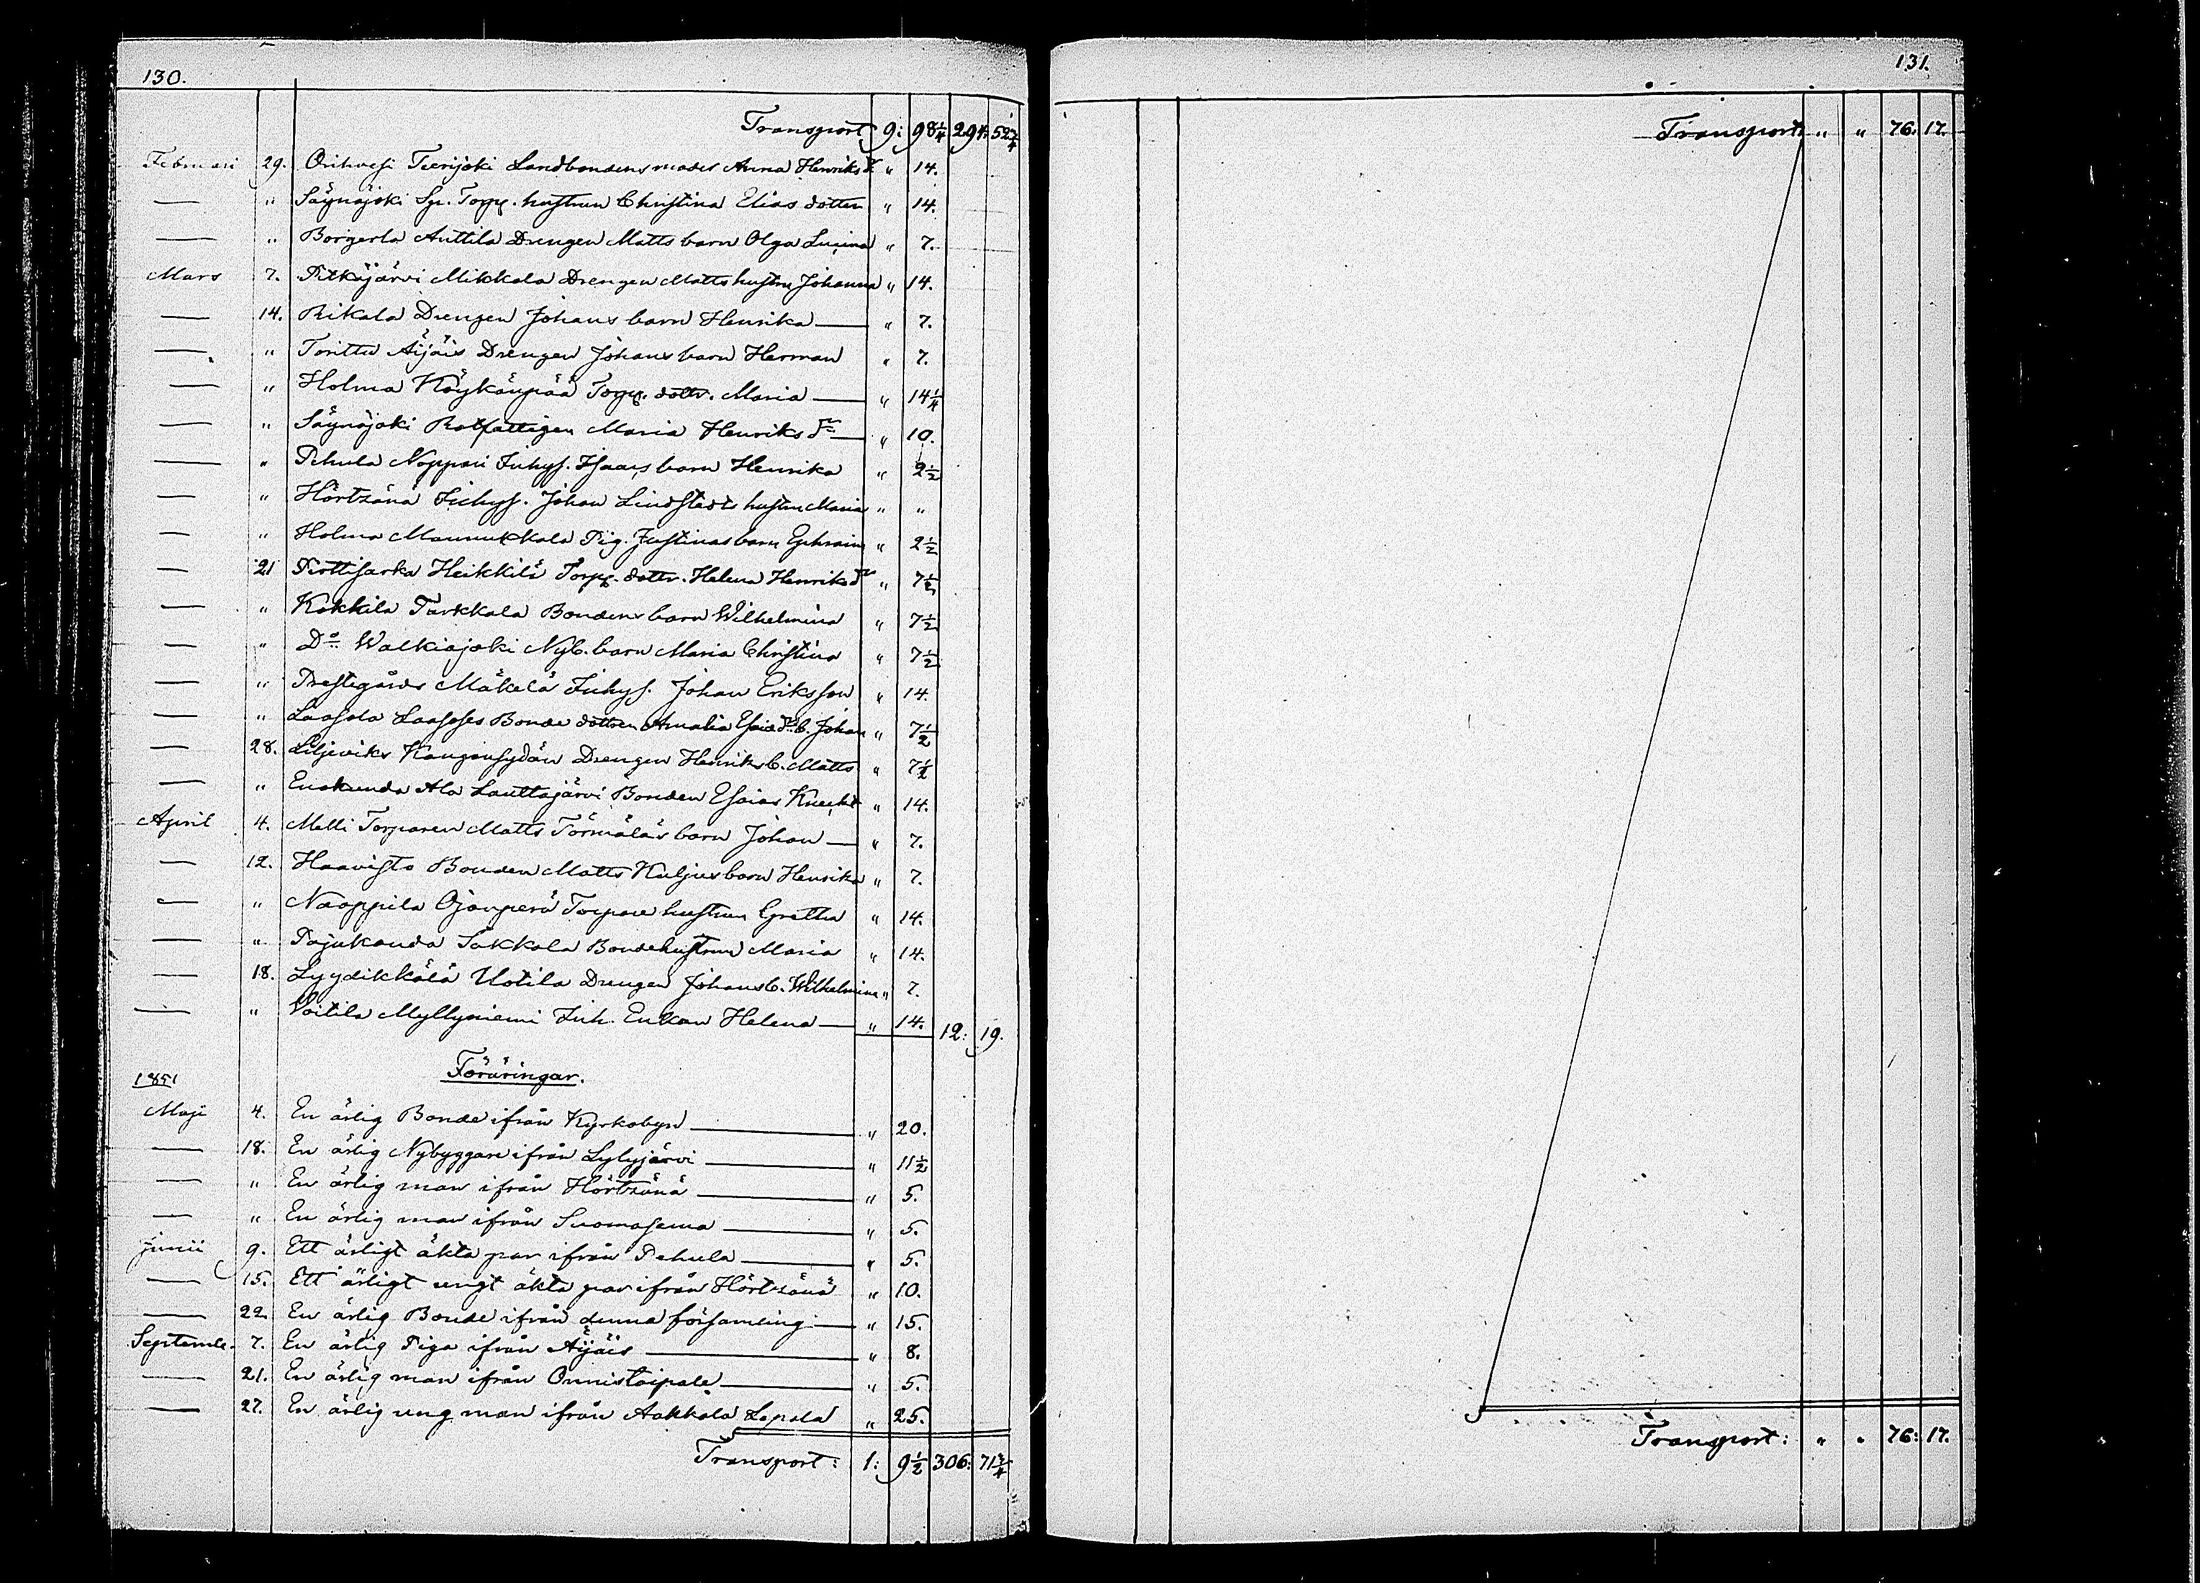 130.
Transport 9: 98 1/4 294: 52 3/4
Februari 29. Orihvesi Teerijoki Landbondens moder Anna Henriks dr " 14.
— " Säynäjoki Sn. Torp. hustrun Christina Elias dotter " 14.
— " Borgerla Anttila Drengen Matts barn Olga Lucina " 7.
Mars 7. Pitkäjärvi Mikkola Drengen Matts hustru Johanna " 14.
— 14. Rikala Drengen Johans barn Henrika — " 7.
— " Torittu Äijäis Drengen Johans barn Herman " 7.
— " Holma Köykänpää Torp. dottr. Maria — " 14 1/4
— " Säynäjoki Rotfattigen Maria Henriks dr — " 10.
— " Pehula Noppari Inhys. Isaacs barn Henrika " 2 1/2
— " Hörtsänä Inhys. Johan Lindstedts hustru Maria " "
— " Holma Mannukkala Pig. Justinas barn Ephraim " 2 1/2
— 21 Perttisarka Heikkilä Torp. dottr. Helena Henriks dr " 7 1/2
— " Kokkila Parkkala Bondens barn Wilhelmina " 7 1/2
— " Do Walkiajoki Nyb. barn Maria Christina " 7 1/2
— " Prestegårds Mäkelä Inhys. Johan Eriksson " 14.
— " Laasola Laasoses Bonde dottren Amalia Esaie dr b. Johan " 7 1/2
— 28. Liljeviks Kangensydän Drengen Henriks b. Matts " 7 1/2
— " Enokunda Ala Lauttajärvi Bonden Esaias Knecht " 14.
April 4. Melli Torparen Matts Törmäläs barn Johan — " 7.
— 12. Haavisto Bonden Matts Kuljus barn Henrika " 7.
— " Naappila Ojanperä Torpare hustrun Gretha " 14.
— " Pajukanda Sakkola Bondehustrun Maria " 14.
— 18. Lyydikkälä Uotila Drengen Johans b. Wilhelmina " 7.
— " Voitila Myllyniemi Inh. Enkan Helena — " 14. 12: 19.
Föräringar.
1851
Maji 4. En ärlig Bonde ifrån Kyrkobyn — " 20.
— 18. En ärlig Nybyggare ifrån Lylyjärvi — " 11 1/2
— " En ärlig man ifrån Hörtsänä — " 5.
— " En ärlig man ifrån Suomasema — " 5.
Junii 9. Ett ärligt äkta par ifrån Pehula — " 5.
— 15. Ett ärligt ungt äkta par ifrån Hörtsänä " 10.
— 22. En ärlig Bonde ifrån denna församling — " 15.
Septemb. 7. En ärlig Piga ifrån Äijäis — " 8.
— 21. En ärlig man ifrån Onnistaipale — " 5.
— 27. En ärlig ung man ifrån Aakkala Lapala " 25.
Transport: 1: 9 1/2 306: 71 3/4
131.
Transport: " " 76: 17.
Transport: " " 76: 17.